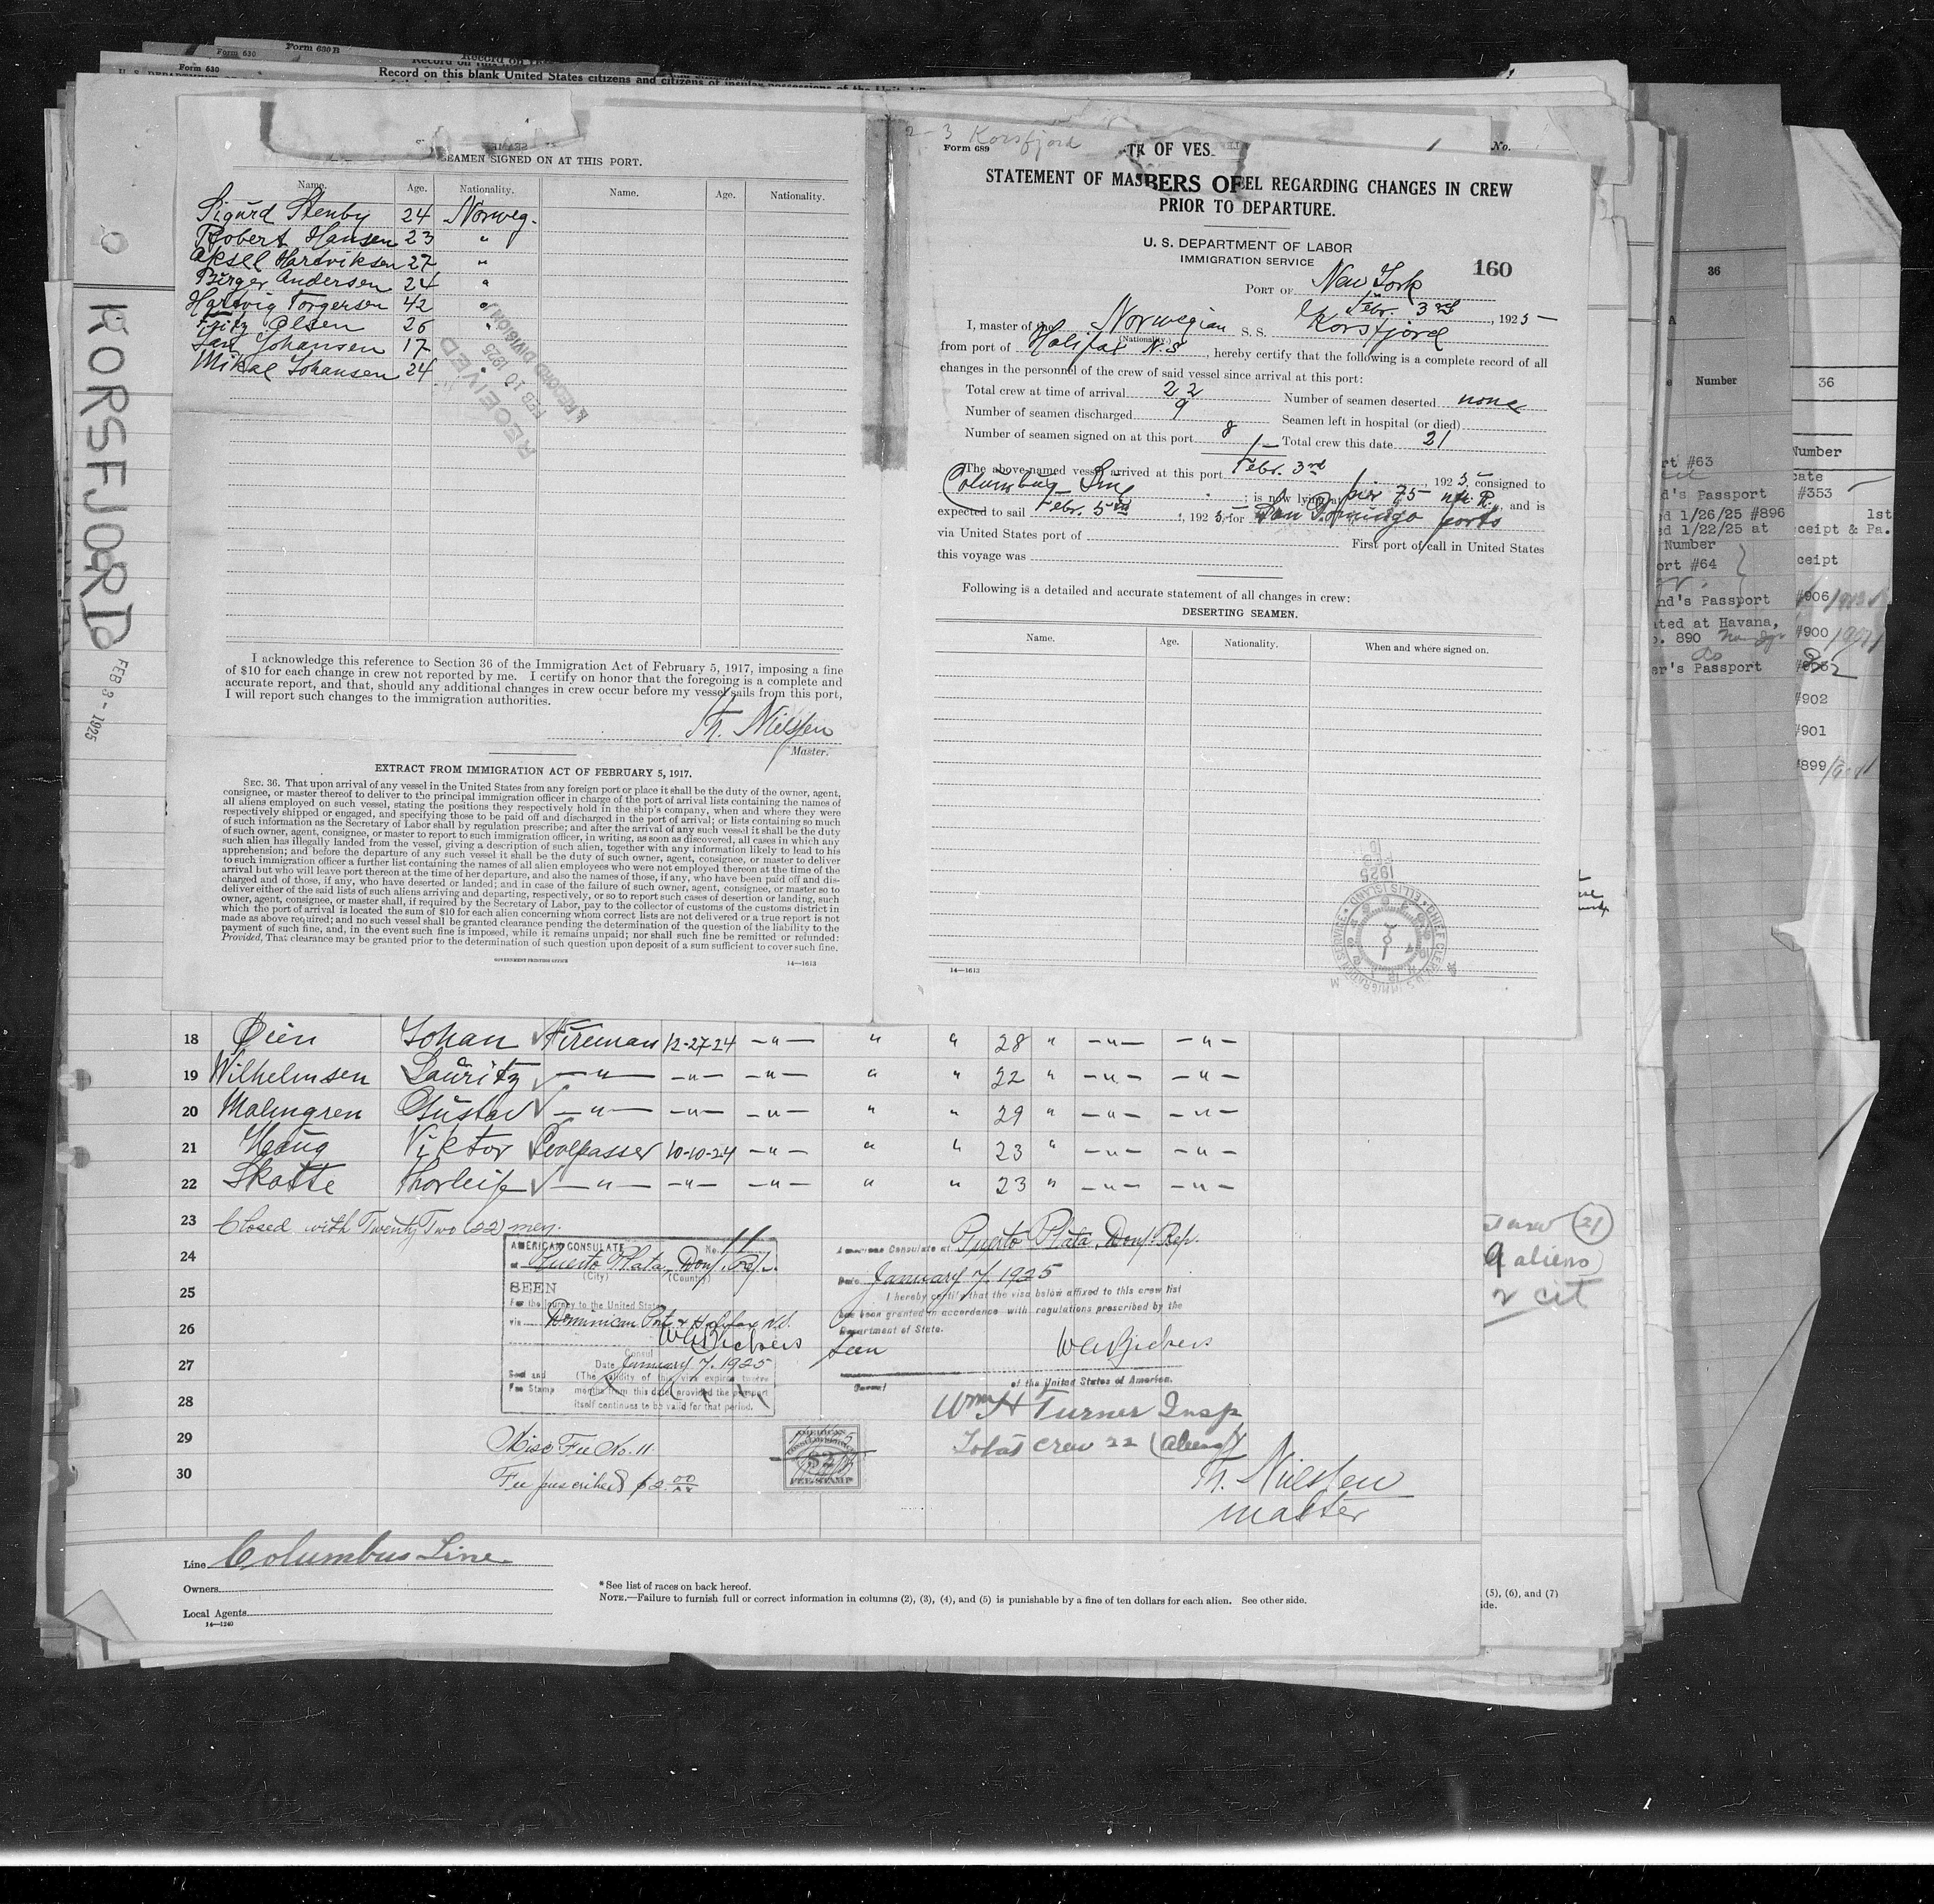 Form 630 B
Form 630
Form 630
Record on this blank United States citizens and citizens of insular possessions of the
KORSFJORD
FEB 3 - 1925
SEAMEN SIGNED ON AT THIS PORT.
Name. Age. Nationality. Name. Age. Nationality.
Sigurd Stenby 24 Norweg.
Robert Hansen 23 "
Aksel Hartviksen 27 "
Birger Andersen 24 "
Hartvig Torgersen 42 "
Fritz Olsen 26 "
Johansen 17
Mikal Johansen 24
RECEIVED
FEB 10 1925
RECORD DIVISION
I acknowledge this reference to Section 36 of the Immigration Act of February 5, 1917, imposing a fine
of $10 for each change in crew not reported by me. I certify on honor that the foregoing is a complete and
accurate report, and that, should any additional changes in crew occur before my vessel sails from this port,
I will report such changes to the immigration authorities.
Th. Nielssen
Master.
EXTRACT FROM IMMIGRATION ACT OF FEBRUARY 5, 1917.
SEC. 36. That upon arrival of any vessel in the United States from any foreign port or place it shall be the duty of the owner, agent,
consignee, or master thereof to deliver to the principal immigration officer in charge of the port of arrival lists containing the names of
all aliens employed on such vessel, stating the positions they respectively hold in the ship's company, when and where they were
respectively shipped or engaged, and specifying those to be paid off and discharged in the port of arrival; or lists containing so much
of such information as the Secretary of Labor shall by regulation prescribe; and after the arrival of any such vessel it shall be the duty
of such owner, agent, consignee, or master to report to such immigration officer, in writing, as soon as discovered, all cases in which any
such alien has illegally landed from the vessel, giving a description of such alien, together with any information likely to lead to his
apprehension; and before the departure of any such vessel it shall be the duty of such owner, agent, consignee, or master to deliver
to such immigration officer a further list containing the names of all alien employees who were not employed thereon at the time of the
arrival but who will leave port thereon at the time of her departure, and also the names of those, if any, who have been paid off and dis-
charged and of those, if any, who have deserted or landed; and in case of the failure of such owner, agent, consignee, or master so to
deliver either of the said lists of such aliens arriving and departing, respectively, or so to report such cases of desertion or landing, such
owner, agent, consignee, or master shall, if required by the Secretary of Labor, pay to the collector of customs of the customs district in
which the port of arrival is located the sum of $10 for each alien concerning whom correct lists are not delivered or a true report is not
made as above required; and no such vessel shall be granted clearance pending the determination of the question of the liability to the
payment of such fine, and, in the event such fine is imposed, while it remains unpaid; nor shall such fine be remitted or refunded:
Provided, That clearance may be granted prior to the determination of such question upon deposit of a sum sufficient to cover such fine.
GOVERNMENT PRINTING OFFICE 14—1613
2-3 Korsfjord
Form 689 No.
STATEMENT OF MAS BERS OF EL REGARDING CHANGES IN CREW
PRIOR TO DEPARTURE.
U. S. DEPARTMENT OF LABOR
IMMIGRATION SERVICE
160
PORT OF New York
Febr. 3rd, 1925
I, master of the Norwegian S. S. Korsfjord
(Nationality.)
from port of Halifax N.S., hereby certify that the following is a complete record of all
changes in the personnel of the crew of said vessel since arrival at this port:
Total crew at time of arrival 22 Number of seamen deserted none
Number of seamen discharged 9 Seamen left in hospital (or died)
Number of seamen signed on at this port 8 Total crew this date 21
The above-named vessel arrived at this port Febr. 3rd, 1925, consigned to
Columbus Line; is now lying at pier 75 N. R., and is
expected to sail Febr. 5th, 1925, for San Domingo ports
via United States port of First port of call in United States
this voyage was
Following is a detailed and accurate statement of all changes in crew:
DESERTING SEAMEN.
Name. Age. Nationality. When and where signed on.
1925
14—1613
18 Øien Johan Fireman 12-27-24 —"— " " 28 " —"— —"—
19 Wilhelmsen Lauritz —"— —"— —"— " " 22 " —"— —"—
20 Malmgren Gustav —"— —"— —"— " " 29 " —"— —"—
21 Haug Viktor Coalpasser 10-10-24 —"— " " 23 " —"— —"—
22 Skotte Thorleif —"— —"— —"— " " 23 " —"— —"—
23 Closed with Twenty Two (22) men.
24
25
26
27
28
29
30
AMERICAN CONSULATE No. 11
at Puerto Plata, Dom. Rep.
(City) (Country)
SEEN
For the journey to the United States
via Dominican Ports & Halifax N.S.
W A Bickers
Consul
Date January 7, 1925
Seal and Fee Stamp
(The validity of this visa expires twelve
months from this date provided the passport
itself continues to be valid for that period.
American Consulate at Puerto Plata, Dom. Rep.
Date January 7, 1925
I hereby certify that the visa below affixed to this crew list
has been granted in accordance with regulations prescribed by the
Department of State.
Seen W A Bickers
Consul of the United States of America.
Wm H Turner Insp
Total crew 22 (aliens)
Th. Nielssen
master
Misc Fee No. 11
Fee prescribed $2.00
AMERICAN
$2
FEE STAMP
Line Columbus Line
Owners
Local Agents
14—1240
*See list of races on back hereof.
NOTE.—Failure to furnish full or correct information in columns (2), (3), (4), and (5) is punishable by a fine of ten dollars for each alien. See other side.
(5), (6), and (7)
ide.
(21)
9 aliens)
2 cit
36
Number
rt #63
d's Passport
ed 1/26/25 #896
ed 1/22/25 at
Number
ort #64
nd's Passport
ated at Havana,
o. 890
er's Passport
36
Number
cate
#353
1st
ceipt & Pa.
ceipt
#906
#900
#902
#901
#899